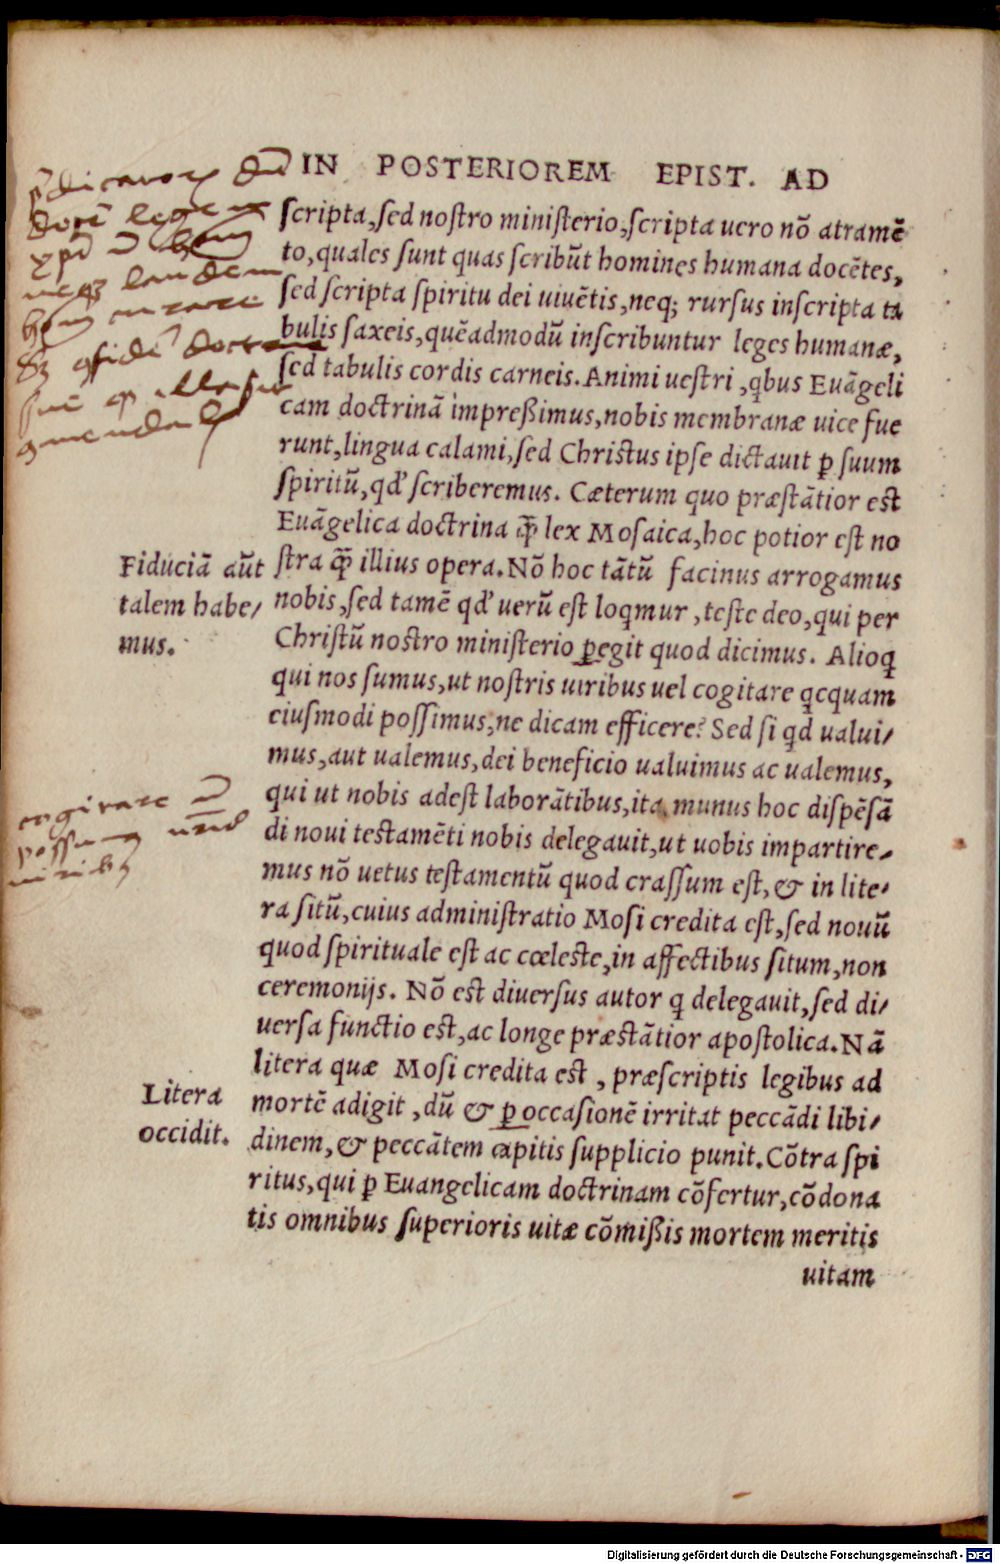 IN POSTERIOREM EPIST. AD
ſcripta, ſed noſtro miniſterio, ſcripta uero nõ atramẽ
to, quales ſunt quas ſcribũt homines humana docẽtes,
ſed ſcripta ſpiritu dei uiuẽtis, neq; rurſus inſcripta ta
bulis ſaxeis, quẽadmodũ inſcribuntur leges humanæ,
ſed tabulis cordis carneis. Animi ueſtri, q̃bus Euãgeli
cam doctrinã impreßimus, nobis membranæ uice fue
runt, lingua calami, ſed Chriſtus ipſe dictauit ꝑ ſuum
ſpiritũ, qđ ſcriberemus. Cæterum quo præſtãtior eſt
Euãgelica doctrina q̃ lex Moſaica, hoc potior eſt no
ſtra q̃ illius opera. Nõ hoc tãtũ facinus arrogamus
nobis, ſed tamẽ qđ uerũ eſt loq̃mur, teſte deo, qui per
Chriſtũ noſtro miniſterio ꝑegit quod dicimus. Alioq
qui nos ſumus, ut noſtris uiribus uel cogitare q̃cquam
eiuſmodi poſſimus, ne dicam efficere? Sed ſi q̃d ualui/
mus, aut ualemus, dei beneficio ualuimus ac ualemus,
qui ut nobis adeſt laborãtibus, ita munus hoc diſpẽſã
di noui teſtamẽti nobis delegauit, ut uobis impartire/
mus nõ uetus teſtamentũ quod craſſum eſt, & in lite/
ra ſitũ, cuius adminiſtratio Moſi credita eſt, ſed nouũ
quod ſpirituale eſt ac cœleſte, in affectibus ſitum, non
ceremonijs. Nõ eſt diuerſus autor q delegauit, ſed di/
uerſa functio eſt, ac longe præſtãtior apoſtolica. Nã
litera quæ Moſi credita eſt, præſcriptis legibus ad
mortẽ adigit, dũ & ꝑ occaſionẽ irritat peccãdi libi/
dinem, & peccãtem capitis ſupplicio punit. Cõtra ſpi
ritus, qui ꝑ Euangelicam doctrinam cõfertur, cõdona
tis omnibus ſuperioris uitæ cõmißis mortem meritis
uitam
Fiduciã aũt
talem habe/
mus.
cogitare
poſſum
uiribꝫ
Litera
occidit.
Digitalisierung gefördert durch die Deutsche Forschungsgemeinschaft - DFG